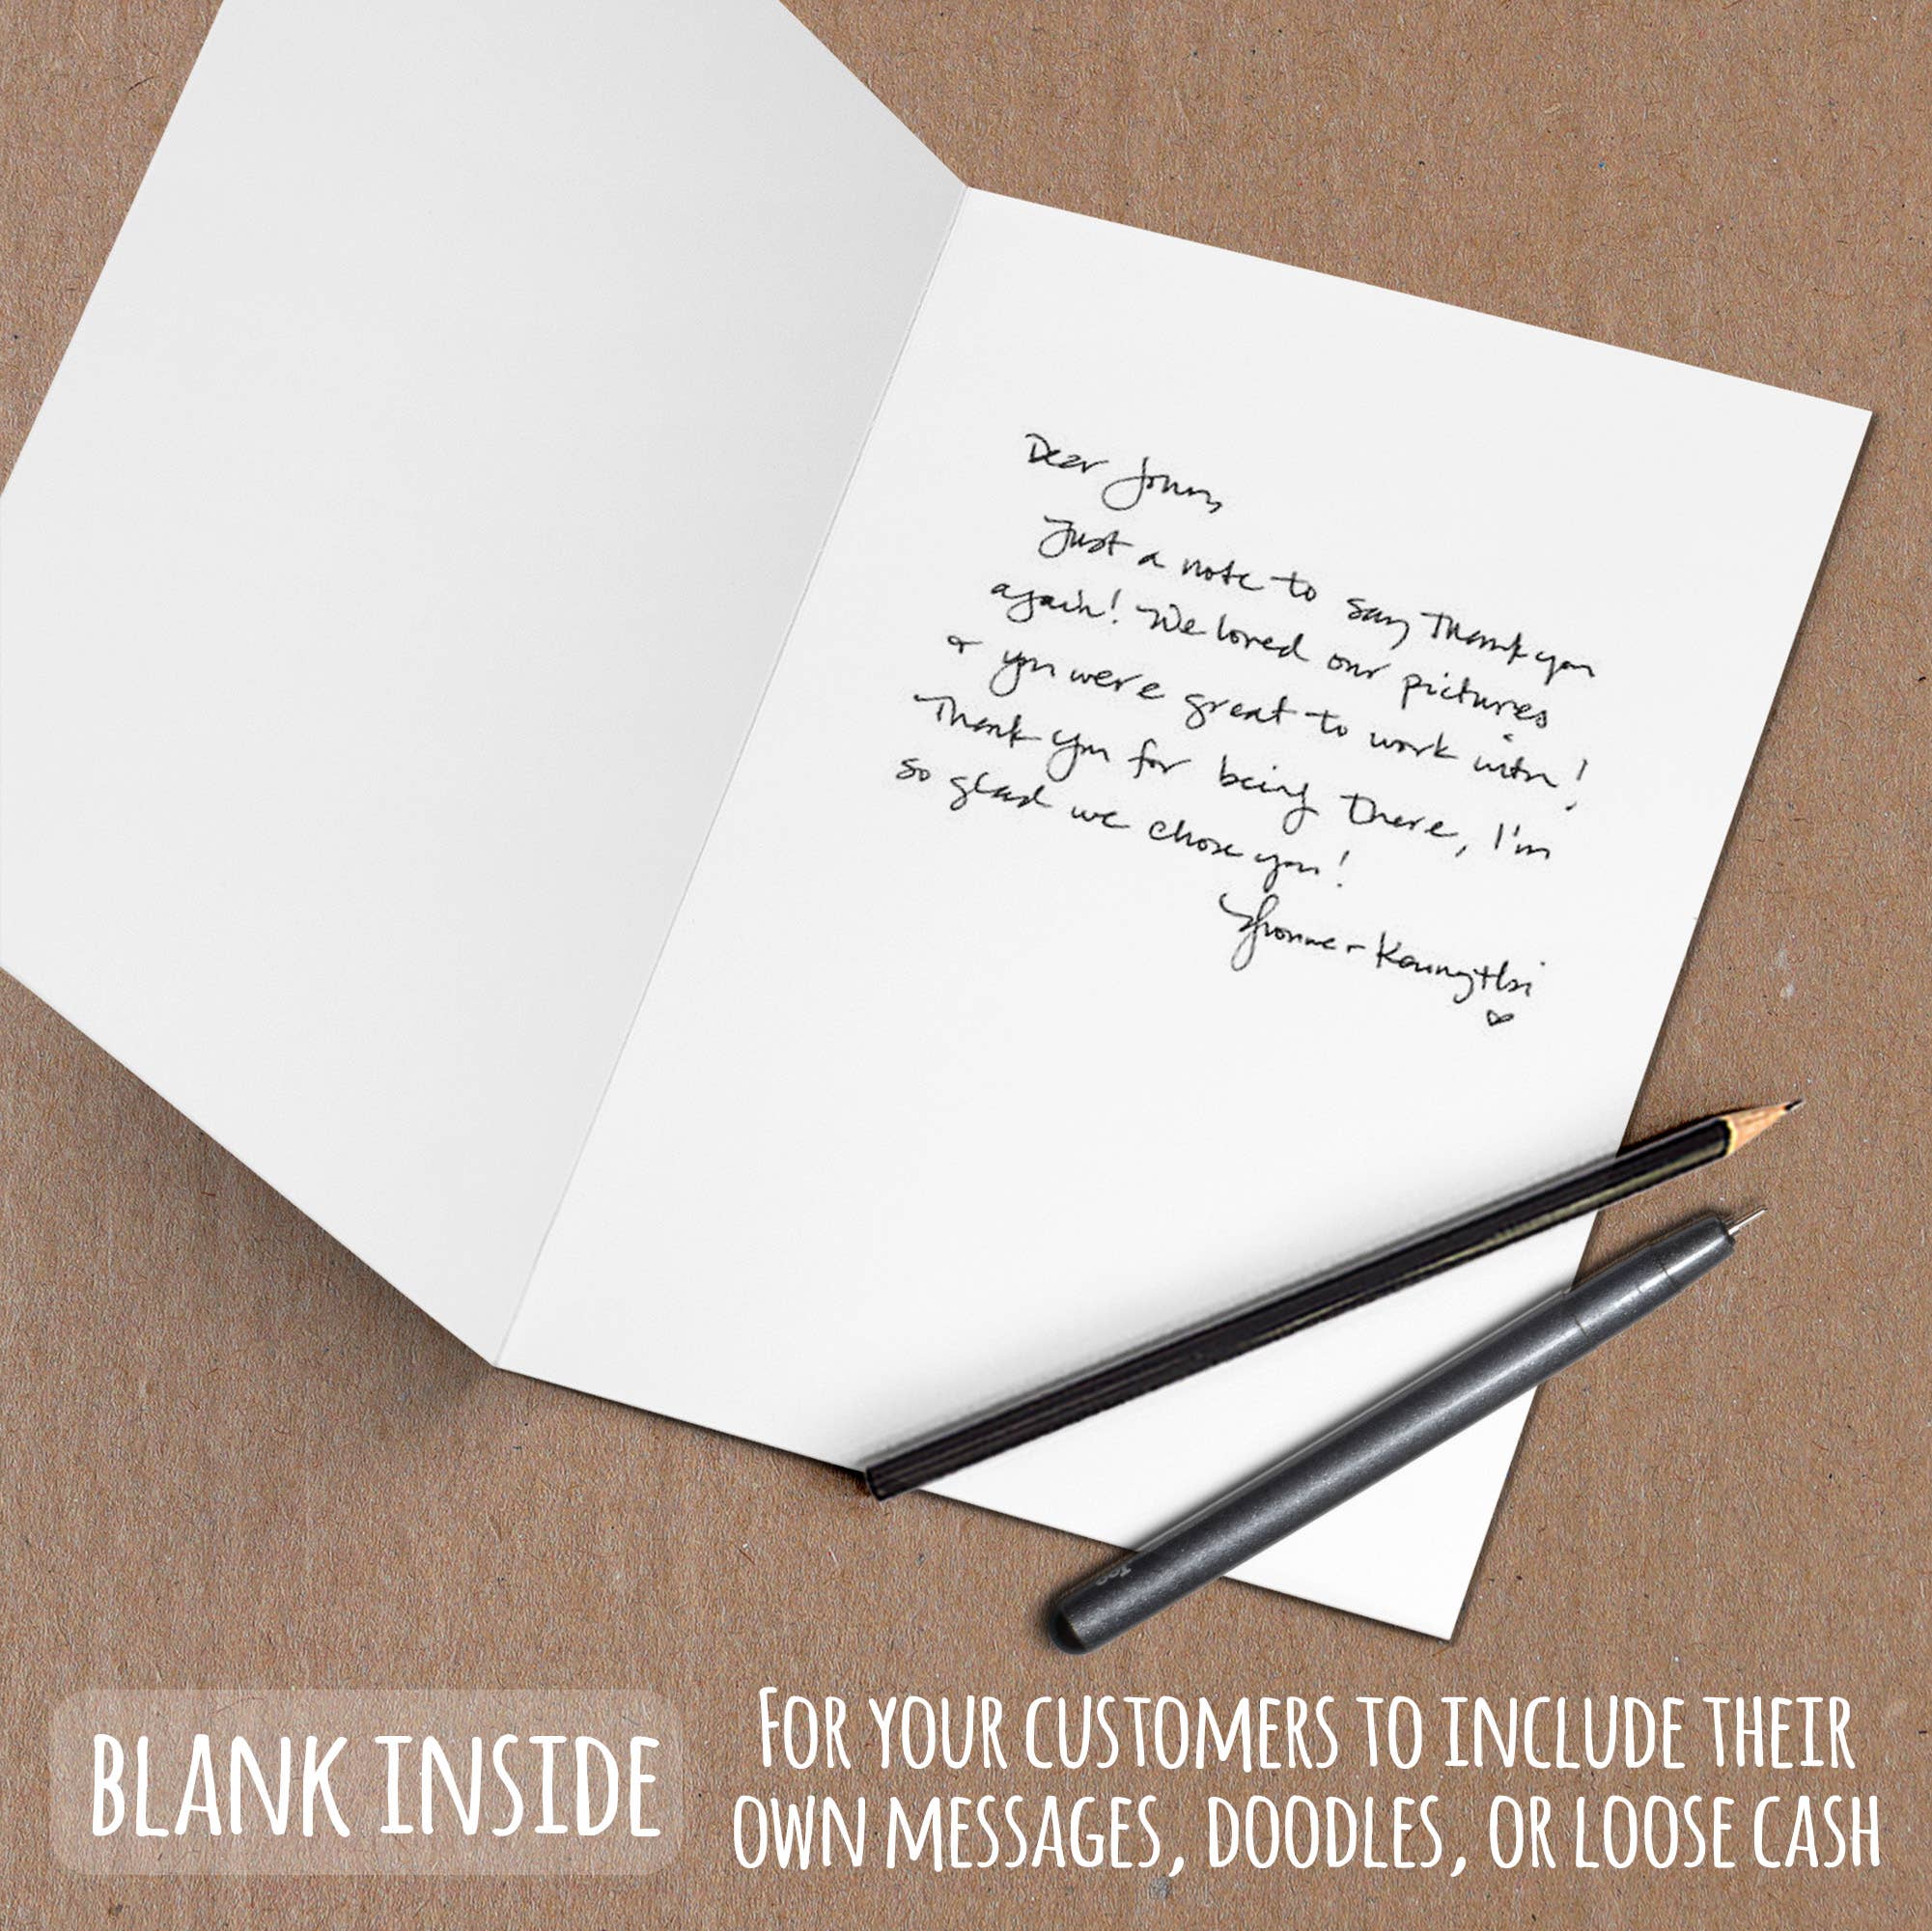 Dear Jonas,
Just a note to say Thank you
again! We loved our pictures
& you were great to work with!
Thank you for being there, I'm
so glad we chose you!
Yvonne +
BLANK INSIDE
FOR YOUR CUSTOMERS TO INCLUDE THEIR
OWN MESSAGES, DOODLES, OR LOOSE CASH